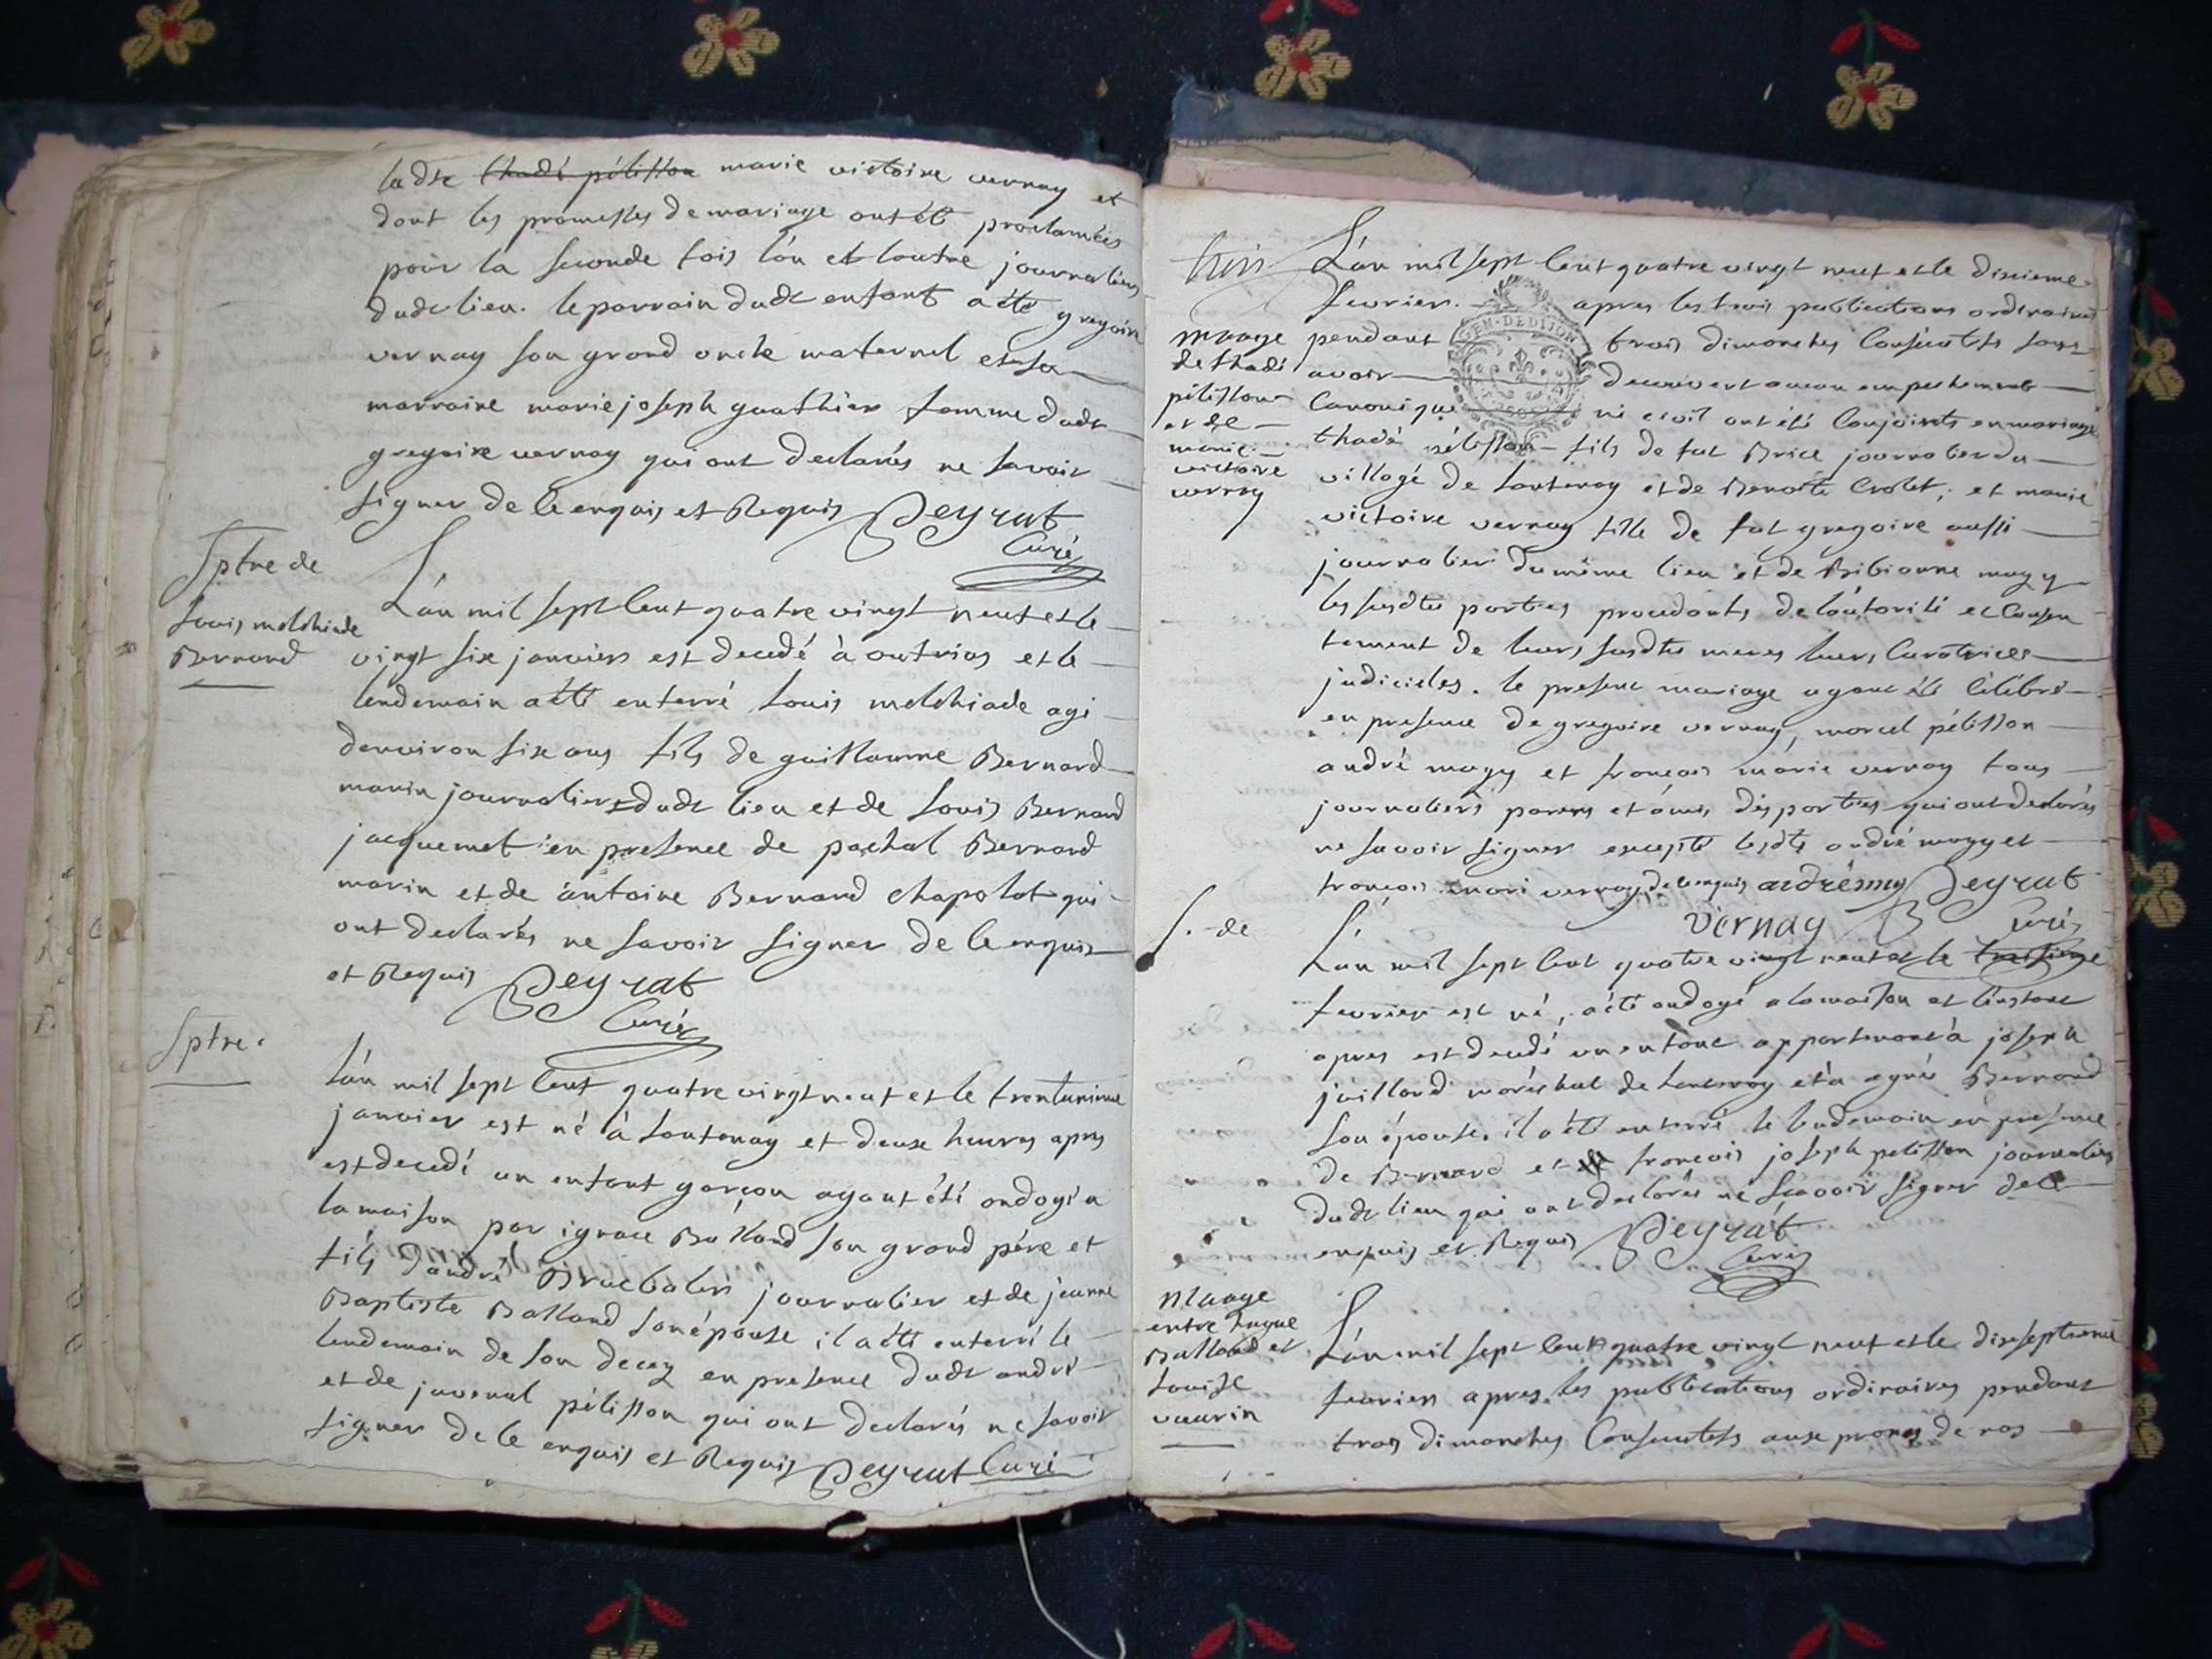 ladte thadé pélisson marie victoire vernay et
dont les promesses de mariage ont été proclamées
pour la seconde fois l'un et l'autre journaliers
dudt lieu. le parrain dudt enfant a été gregoire
vernay son grand oncle maternel et sa
marraine marie joseph gauthier femme dudt
gregoire vernay qui ont declarés ne savoir
signer de ce enquis et Requis Peyrat
Curé
Sptre de
Louis melchiade
Bernard
L'an mil sept cent quatre vingt neuf et le
vingt six janvier est decedé à outriaz et le
lendemain a été enterré Louis melchiade agé
denviron six ans fils de guillaume Bernard
marin journalier dudt lieu et de Louis Bernard
jacquemet en presence de pachal Bernard
marin et de antoine Bernard chapolot qui
ont declarés ne savoir signer de ce enquis
et Requis Peyrat
Curé
Sptre.
L'an mil sept cent quatre vingt neuf et le trentunieme
janvier est né à lantenay et deux heures apres
est decedé un enfant garçon ayant été ondoyé a
la maison par ignace Balland son grand pére et
fils d'andré journalier et de jeanne
Baptiste Balland son épouse il a été enterré le
lendemain de son decez en presence dudt andré
et de juvenal pélisson qui ont declarés ne savoir
signer de ce enquis et Requis Peyrat Curé
GEN·DE DIJON
L'an mil sept cent quatre vingt neuf et le dixieme
fevrier. apres les trois publications ordinaires
mariage
de thadé
pélisson
et de
marie
victoire
vernay
pendant trois dimanches consecutifs sans
avoir decouvert aucun empechement
canonique ni civil ont été conjoints en mariage
thadé pélisson fils de fut Brice journalier du
village de lantenay et de Benoite Crolet; et marie
victoire vernay fille de fut gregoire aussi
journalier du même lieu et de Bibianne mugy
les susdtes parties procedants de l'autorité et consen
tement de leurs susdtes meres leurs curatrices
judicieles. le present mariage ayant été célébré
en presence de gregoire vernay, marcel pélisson
andré mugy et francois marie vernay tous
journaliers parens et amis des parties qui ont declarés
ne savoir signer excepté lesdts andré mugy et
francois marie vernay de ce enquis andré mugy Peyrat
vernay Curé
S. de
L'an mil sept cent quatre vingt neuf et le
fevrier est né, a été ondoyé a la maison et l'instant
apres est decedé un enfant appartenant à joseph
juillard maréchal de lantenay et à agnés Bernard
son épouse. il a été enterré le lendemain en presence
de Bernard et francois joseph pelisson journaliers
dudt lieu qui ont declarés ne scavoir signer de ce
enquis et Requis Peyrat
Curé
mariage
entre hugue
Balland et
Louise
vaurin
L'an mil sept cent quatre vingt neuf et le dixseptieme
fevrier apres les publications ordinaires pendant
trois dimanches consecutifs aux prones de nos